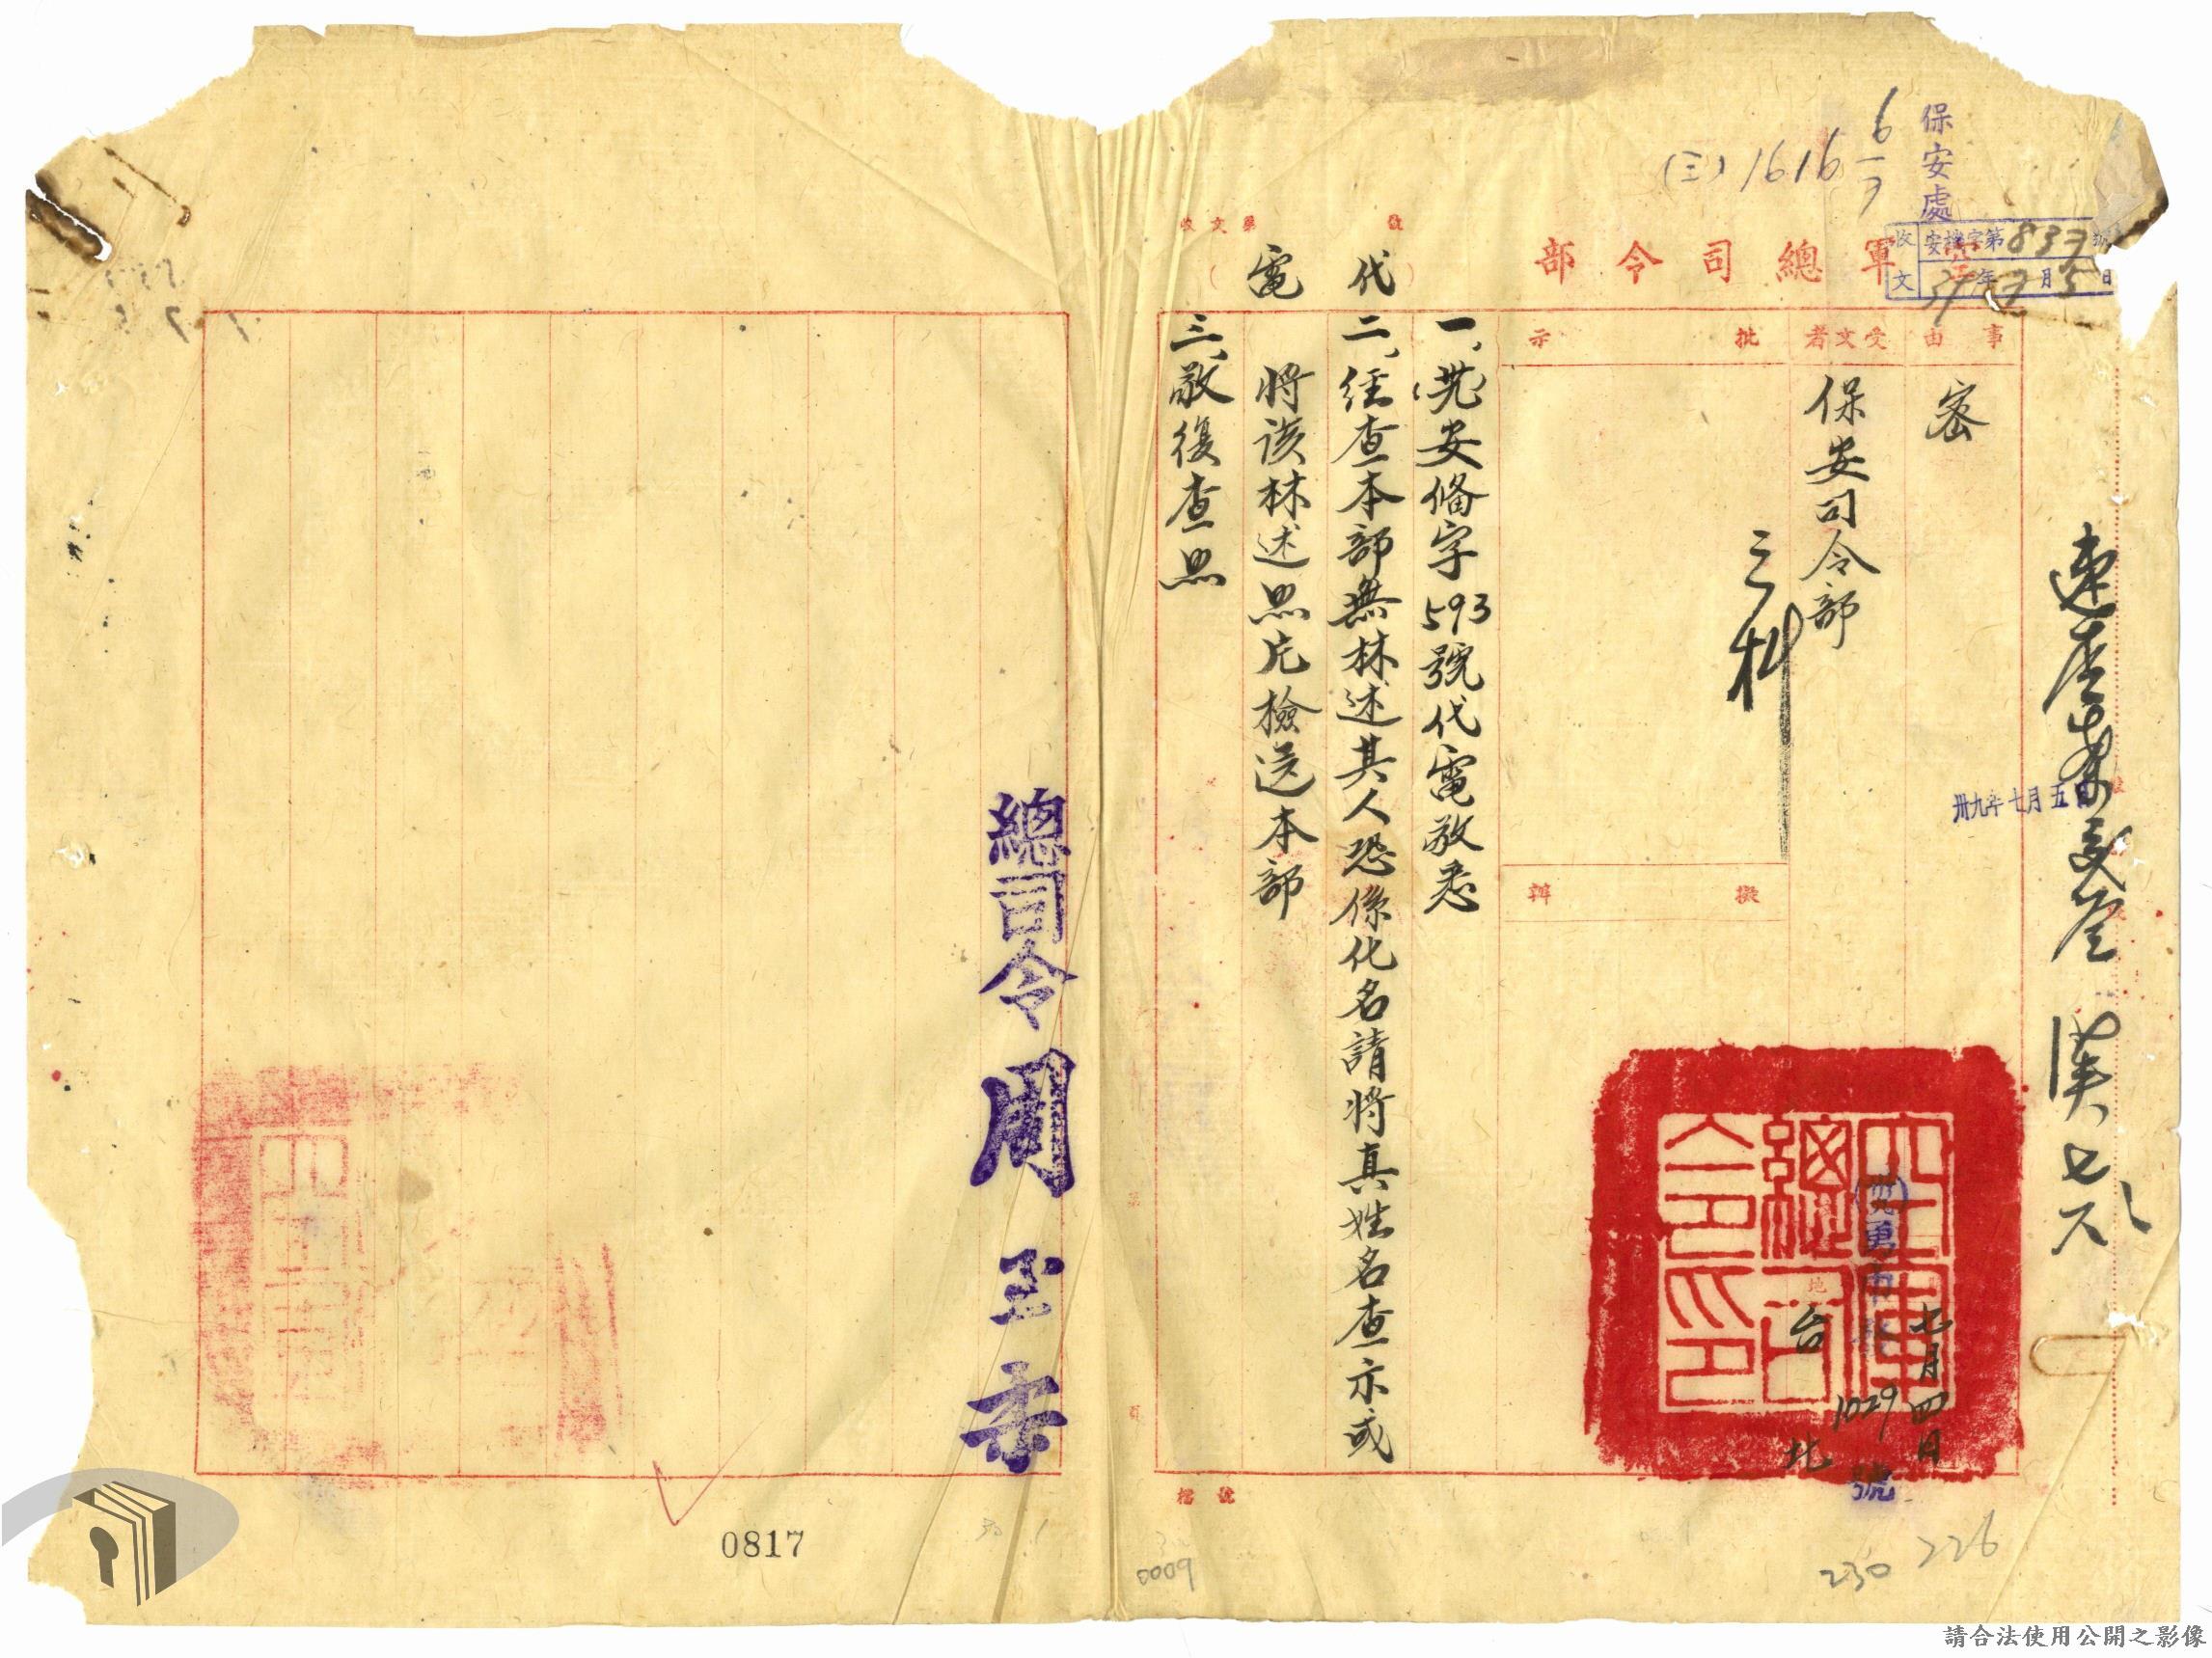 保安處
收文 安機字第837號
39年7月5日
(三)1616 6/7
軍總司令部
代電
收文第 號
事由
密
受文者
保安司令部
批示
三科
擬辦
卅九年七月五日
漢
七月四日
1029
號
台北
空軍總司令印
一、安偹字593號代電敬悉
二、經查本部無林述其人恐係化名請將真姓名查示或
將該林述照片檢送本部
三、敬復查照
總司令周至柔
檔號
0817
0009
230
226
請合法使用公開之影像